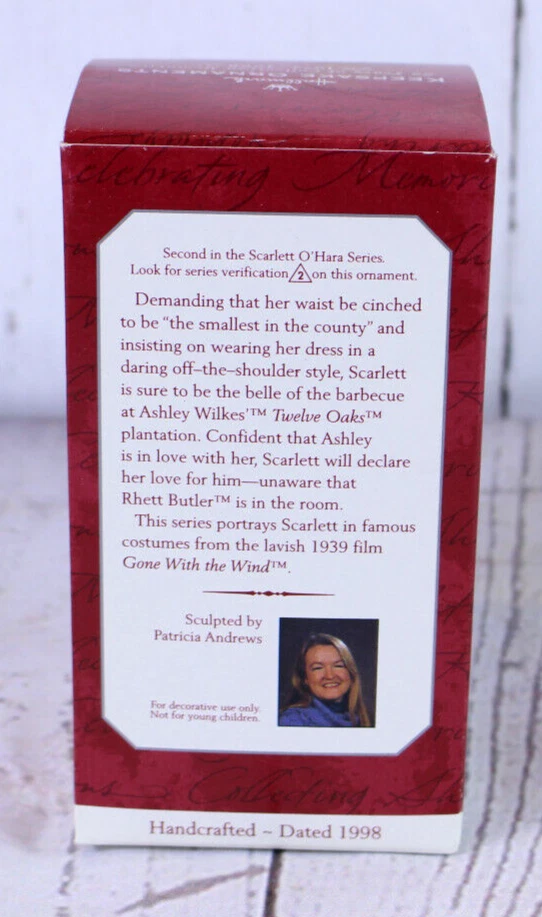 KEEPSAKE ORNAMENTS
Hallmark
Celebrating Memori
Second in the Scarlett O'Hara Series.
Look for series verification 2 on this ornament.
Demanding that her waist be cinched
to be "the smallest in the county" and
insisting on wearing her dress in a
daring off–the–shoulder style, Scarlett
is sure to be the belle of the barbecue
at Ashley Wilkes'™ Twelve Oaks™
plantation. Confident that Ashley
is in love with her, Scarlett will declare
her love for him—unaware that
Rhett Butler™ is in the room.
This series portrays Scarlett in famous
costumes from the lavish 1939 film
Gone With the Wind™.
Sculpted by
Patricia Andrews
For decorative use only.
Not for young children.
Collecting
Handcrafted ~ Dated 1998